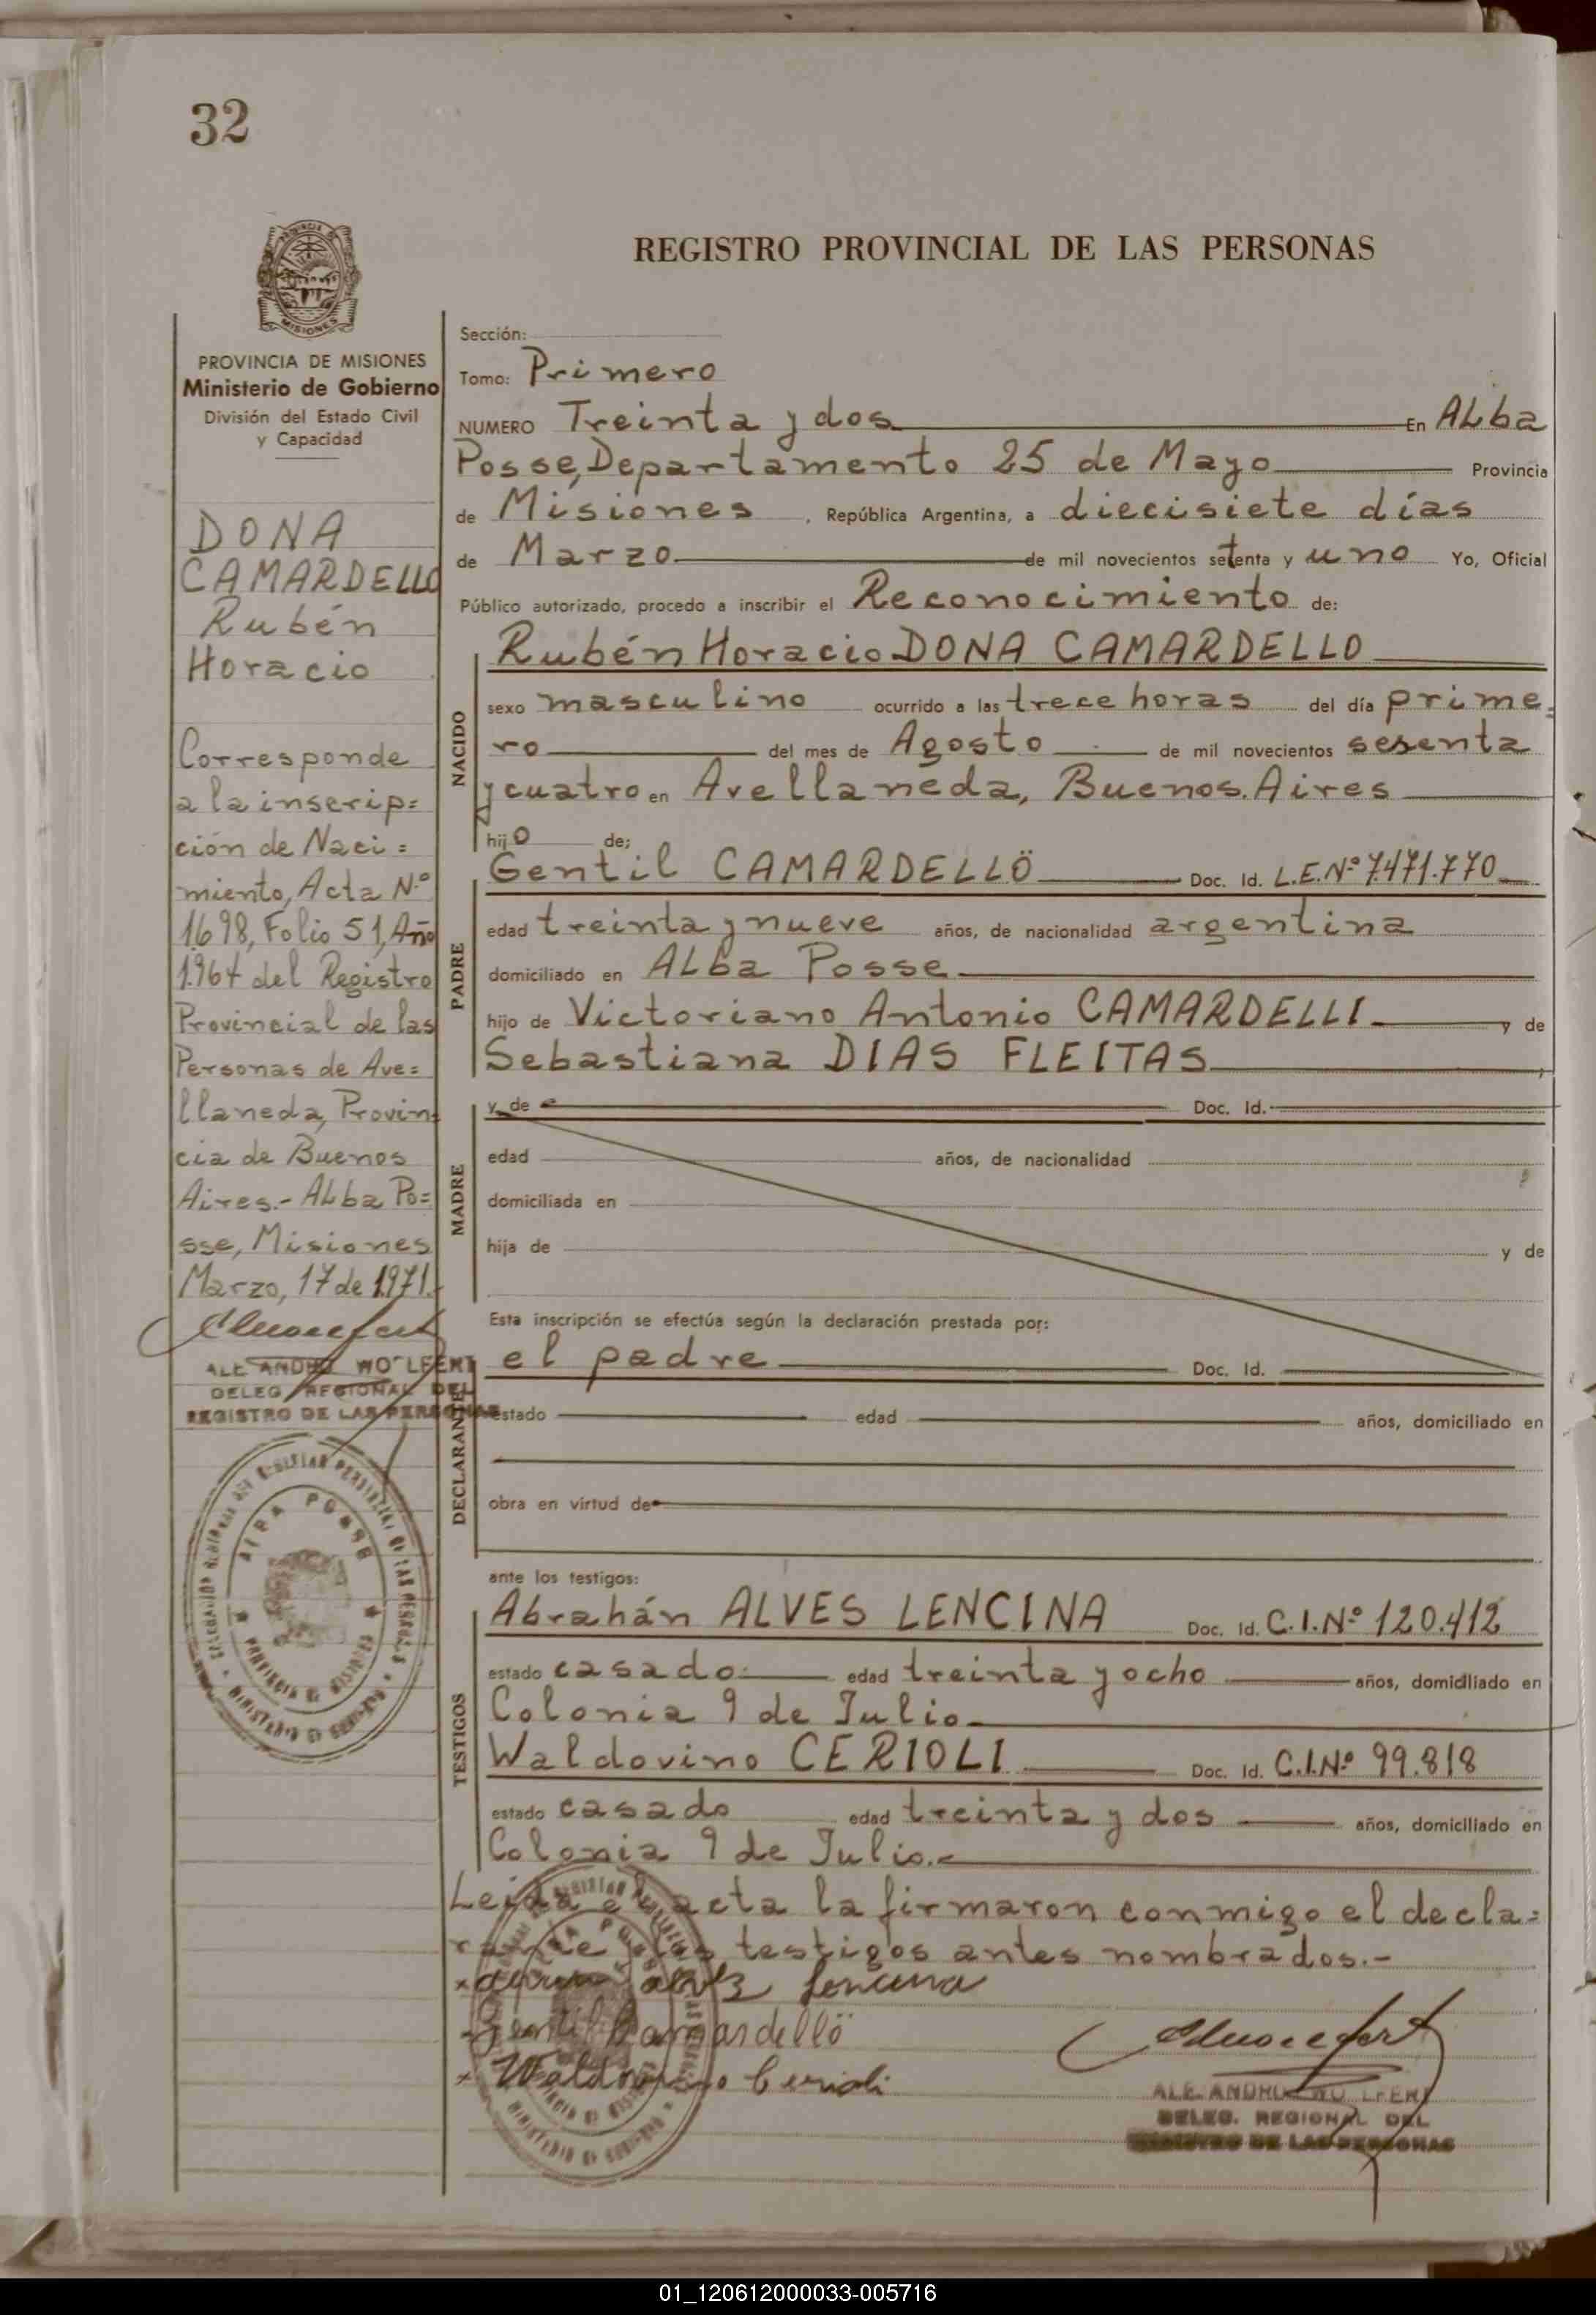 32
MISIONES
PROVINCIA DE MISIONES
Ministerio de Gobierno
División del Estado Civil
y Capacidad
DONA
CAMARDELLO
Rubén
Horacio
Corresponde
a la inscrip=
ción de Naci=
miento, Acta N.º
1698, Folio 51, Año
1.964 del Registro
Provincial de las
Personas de Ave=
llaneda, Provin=
cia de Buenos
Aires.- ALba Po=
sse, Misiones
Marzo, 17 de 1.971.
DELEG. REGIONAL DEL
REGISTRO DE LAS PERSONAS
REGISTRO PROVINCIAL DE LAS PERSONAS
Sección:
Tomo: Primero
NUMERO Treinta y dos En ALba
Posse, Departamento 25 de Mayo Provincia
de Misiones , República Argentina, a diecisiete días
de Marzo de mil novecientos setenta y uno Yo, Oficial
Público autorizado, procedo a inscribir el Reconocimiento de:
NACIDO
Rubén Horacio DONA CAMARDELLO
sexo masculino ocurrido a las trece horas del día prime=
ro del mes de Agosto de mil novecientos sesenta
y cuatro en Avellaneda, Buenos Aires
hijo de;
PADRE
Gentil CAMARDELLÖ Doc. Id. L.E.Nº 7.471.770
edad treinta y nueve años, de nacionalidad argentina
domiciliado en ALba Posse
hijo de Victoriano Antonio CAMARDELLI y de
Sebastiana DIAS FLEITAS
MADRE
y de Doc. Id.
edad años, de nacionalidad
domiciliada en
hija de y de
Esta inscripción se efectúa según la declaración prestada por:
DECLARANTE
el padre Doc. Id.
estado edad años, domiciliado en
obra en virtud de
ante los testigos:
TESTIGOS
Abrahán ALVES LENCINA Doc. Id. C.I.Nº 120.412
estado casado.- edad treinta y ocho años, domiciliado en
Colonia 9 de Julio
Waldovino CERIOLI Doc. Id. C.I.Nº 99.818
estado casado edad treinta y dos años, domiciliado en
Colonia 9 de Julio.-
Leída el acta la firmaron conmigo el decla=
rante y los testigos antes nombrados.-
Lencina
Gentil Camardellö
Waldovino Cerioli
DELEG. REGIONAL DEL
REGISTRO DE LAS PERSONAS
01_120612000033-005716